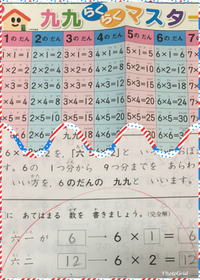 九九らくらくマスター
1のだん 2のだん 3のだん 4のだん 5のだん 6のだん
1×1=1 2×1=2 3×1=3 4×1=4 5×1=5 6×1=6
1×2=2 2×2=4 3×2=6 4×2=8 5×2=10 6×2=12
1×3=3 2×3=6 3×3=9 4×3=12 5×3=15 6×3=18
1×4=4 2×4=8 3×4=12 4×4=16 5×4=20 6×4=24
1×5=5 2×5=10 3×5=15 4×5=20 5×5=25 6×5=30
九九
6の1つ分から 9つ分までを あらわ
いい方を、6のだんの 九九と いいます。
に あてはまる 数を 書きましょう。(完全解)
六一が 6 6×1=6
六二 12 6×2=12
PhotoGrid